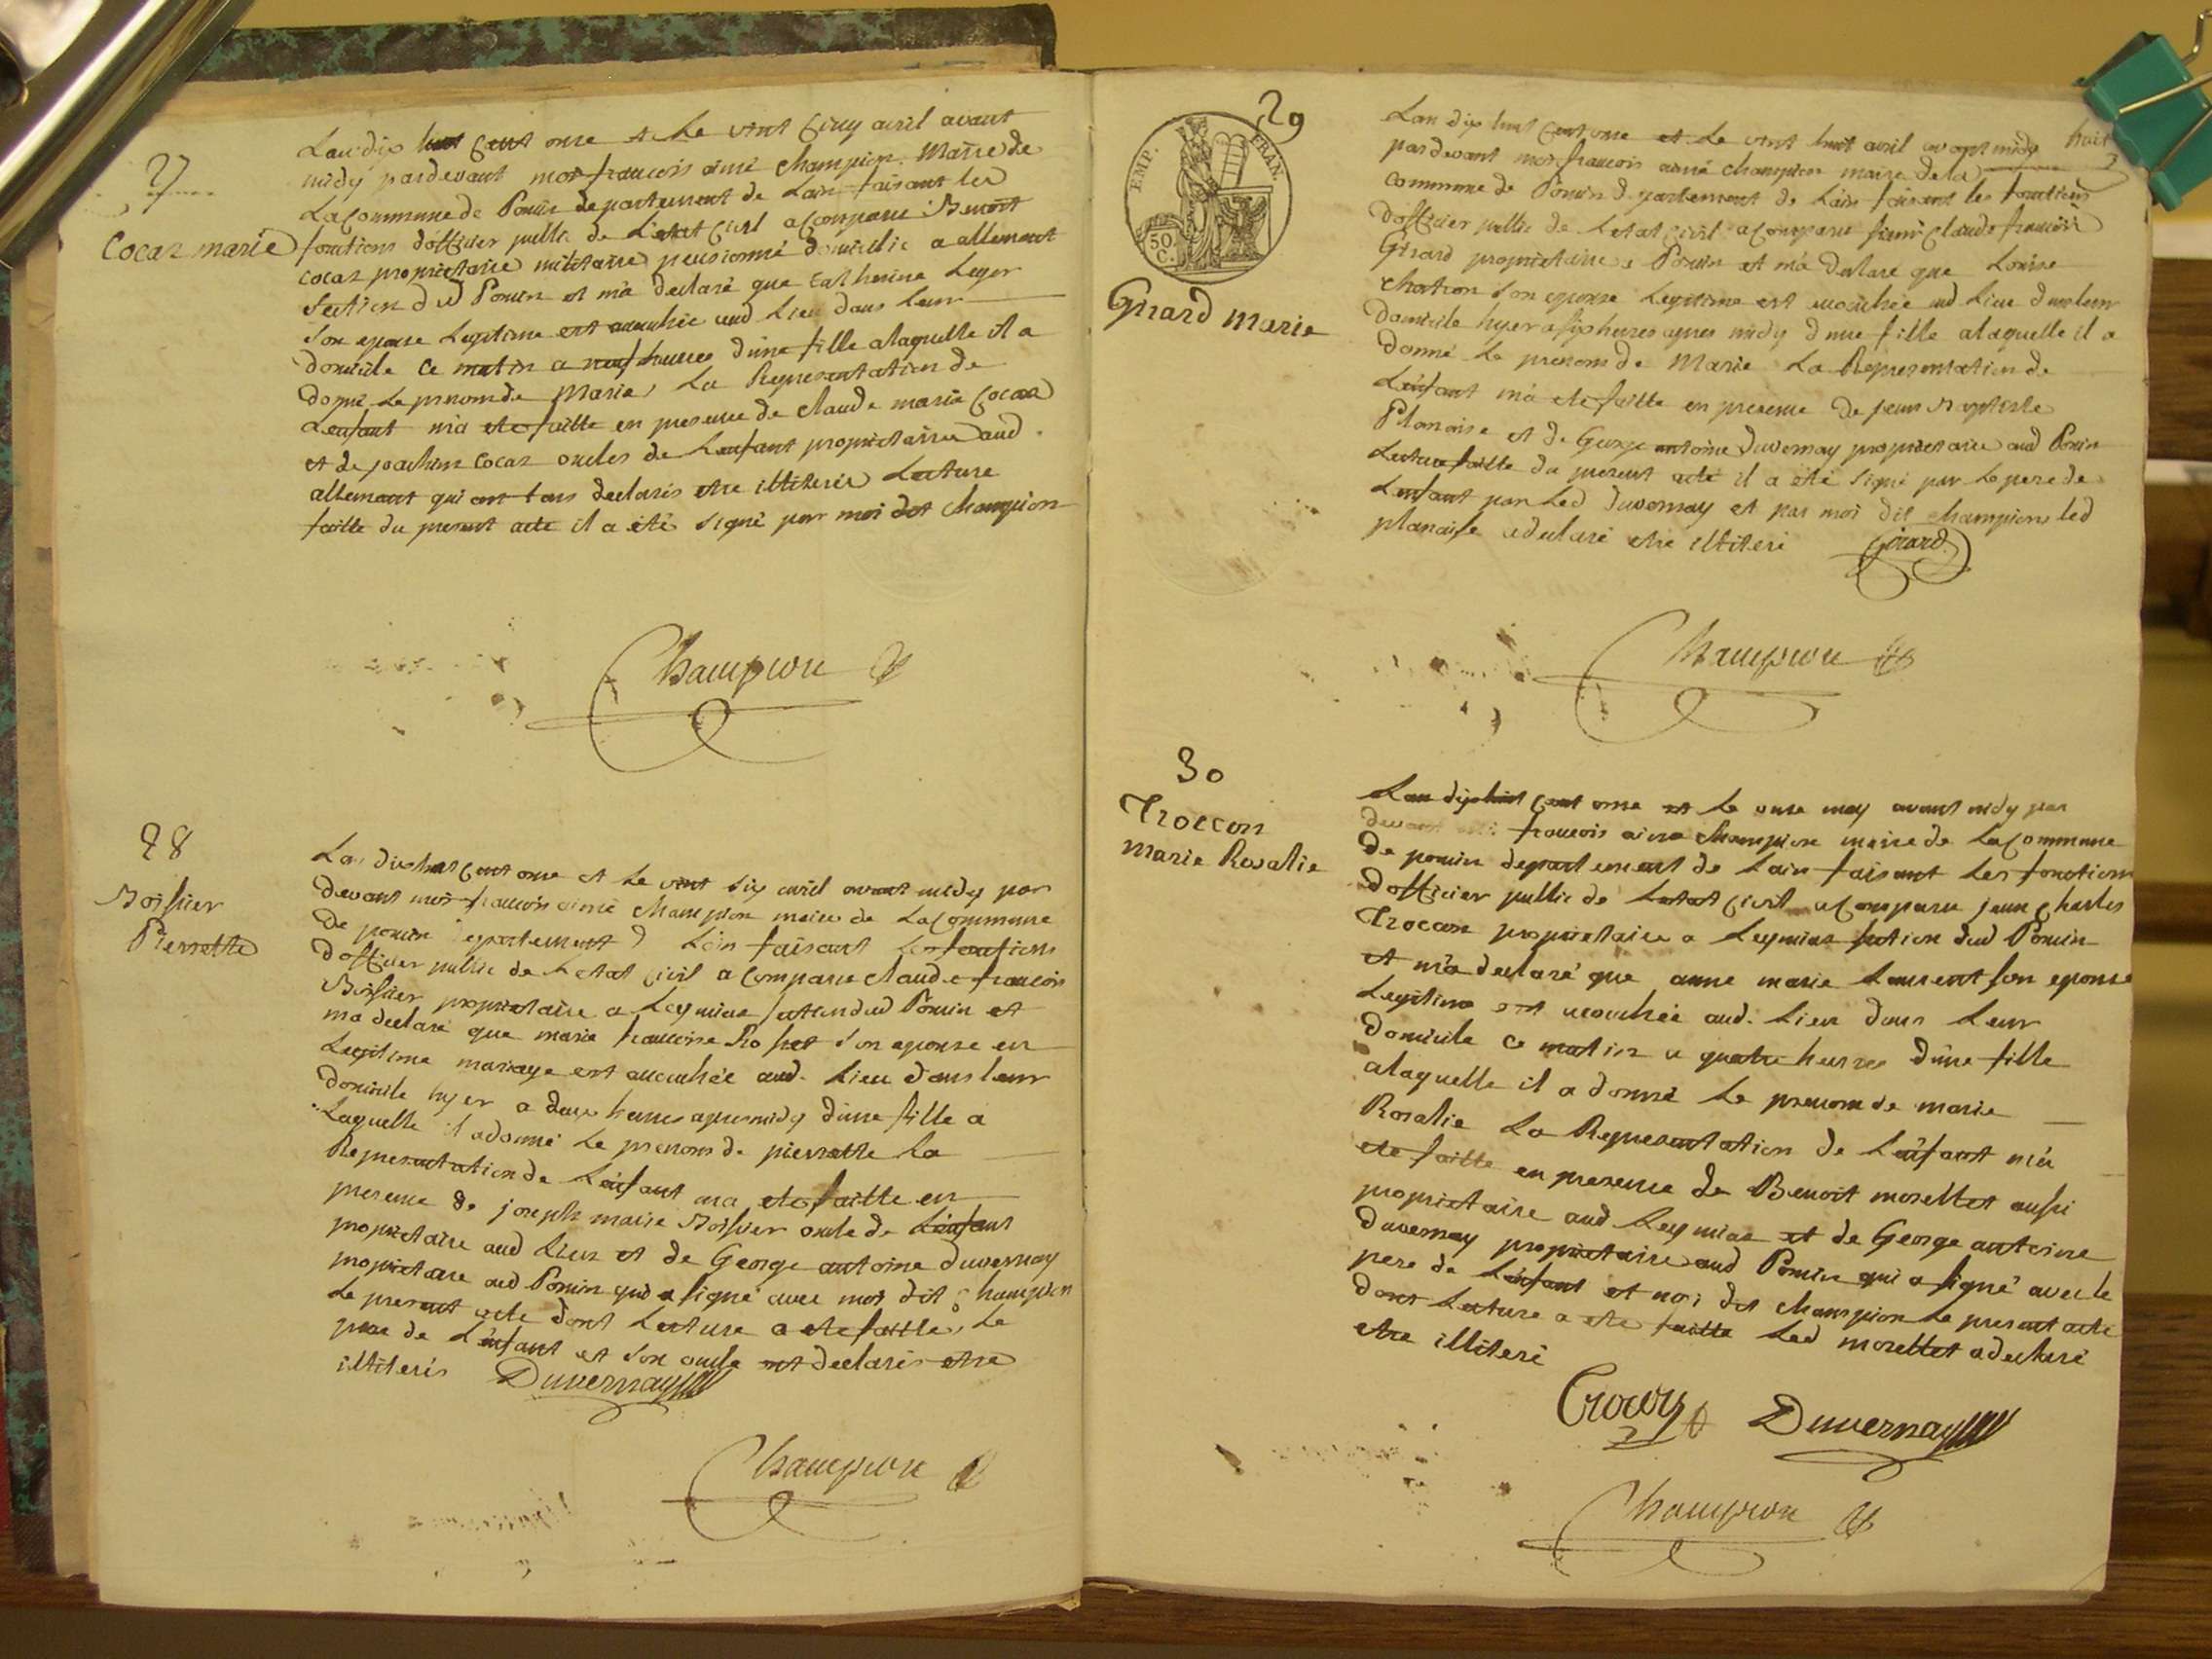 27
Cocaz marie
Lan dix huit cent onze et le vint cinq avril avant
midy pardevant moi francois aimé champion Maire de
La commune de Poncin departement de Lain faisant les
fonctions d'officier public de Letat civil a comparu Benoit
cocaz proprietaire militaire pensionné domicilié a allement
Section dud Poncin et m'a declaré que Catherine Leger
Son epouse Legitime est accouchée aud Lieu dans Leur
domicile ce matin a neuf heures d'une fille alaquelle il a
donné Le prenom de Marie, La Representation de
Lenfant m'a ete faitte en presence de claude marie Cocaz
et de joachim Cocaz oncles de Lenfant proprietaires aud
allement qui ont tous declarés etre illiterés Lecture
faitte du present acte il a été signé par moi dit champion
Champion
28
Boissier
Pierrette
Lan dix huit cent onze et Le vint six avril avant midy par
devant moi francois aimé Champion maire de La Commune
de poncin departement d Lain faisant Les fonctions
d'officier public de Letat civil a comparu claude francois
Boissier proprietaire a Leymiaz section dud Poncin et
ma declaré que marie francoise Rosset Son epouse en
Legitime mariage est accouchée aud. Lieu dans leur
domicile hyer a deux heures apres midy d'une fille a
Laquelle il a donné Le prenom de pierrette La
Representation de Lenfant ma ete faitte en
presence de joseph marie Boissier oncle de Lenfant
proprietaire aud Lieu et de George antoine duvernay
proprietaire aud Poncin qui a signé avec moi dit champion
Le present acte dont Lecture a ete faitte, Le
pere de L'enfant et Son oncle ont declarés etre
illiterés Duvernay
Champion
29
EMP. FRAN.
50 C.
Girard Marie
Lan dix huit cent onze et Le vint huit avril avant midy
pardevant moi francois aimé champion maire dela
commune de Poncin departement de Lain faisant les fonctions
d'officier public de Letat civil a comparu claude francois
Girard proprietaire a Poncin et m'a declaré que Louise
chation Son epouse Legitime est accouchée aud Lieu dans leur
domicile hyer a six heures apres midy d'une fille alaquelle il a
donné Le prenom de Marie La Representation de
Lenfant m'a ete faitte en presence de jean Baptiste
Planaise et de George antoine duvernay proprietaire aud Poncin
Lecture faitte du present acte il a été signé par Le pere de
Lenfant par Led duvernay et par moi dit champion Led
planaise a declaré etre illiteré Girard
Champion
30
Troccon
Marie Rosalie
Lan dix huit cent onze et Le onze may avant midy par
devant moi francois aimé Champion maire de La Commune
de poncin departement de Lain faisant Les fonctions
d'officier public de Letat civil a comparu jean charles
Trocon proprietaire a Leymiaz section dud Poncin
et m'a declaré que anne marie Laurent son epouse
Legitime est accouchée aud. Lieu dans Leur
domicile ce matin a quatre heures d'une fille
alaquelle il a donné Le prenom de marie
Rosalie La Representation de Lenfant m'a
ete faitte en presence de Benoit morellet aussi
proprietaire aud Leymiaz et de George antoine
duvernay proprietaire aud Poncin qui a signé avec le
pere de Lenfant et moi dit champion Le present acte
dont Lecture a ete faitte Led morellet a declaré
etre illiteré
Trocon Duvernay
Champion